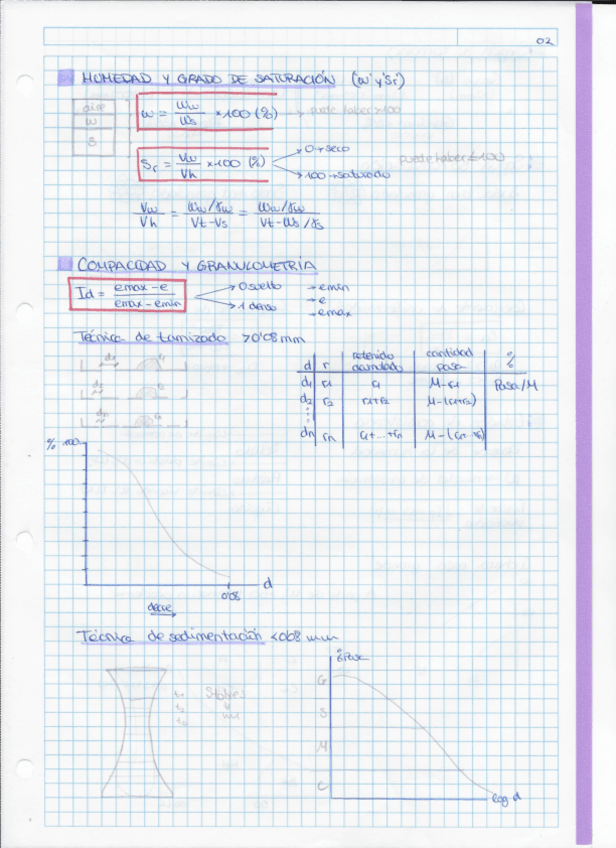 02
HUMEDAD Y GRADO DE SATURACIÓN (ω y Sr)
aire
w
s
ω = Ww/Ws × 100 (%) → puede haber > 100
Sr = Vw/Vh × 100 (%) → 0 → seco
→ 100 → saturado
puede haber ≤ 100
Vw/Vh = (Ww/γw)/(Vt-Vs) = (Ww/γw)/(Vt-Ws/γs)
COMPACIDAD Y GRANULOMETRÍA
Id = (emax - e)/(emax - emin) → 0 suelto → emin
→ 1 denso → e
→ emax
Técnica de tamizado > 0'08 mm
d r retenido acumulado cantidad pasa %
d1 r1 r1 M-r1 Pasa/M
d2 r2 r1+r2 M-(r1+r2)
dn rn r1+...+rn M-(r1+...rn)
d1
d2
d3
% 100
0'08
d
decre
Técnica de sedimentación < 0'08 mm
t1
t2
Stokes
% Pasa
G
S
M
C
log d